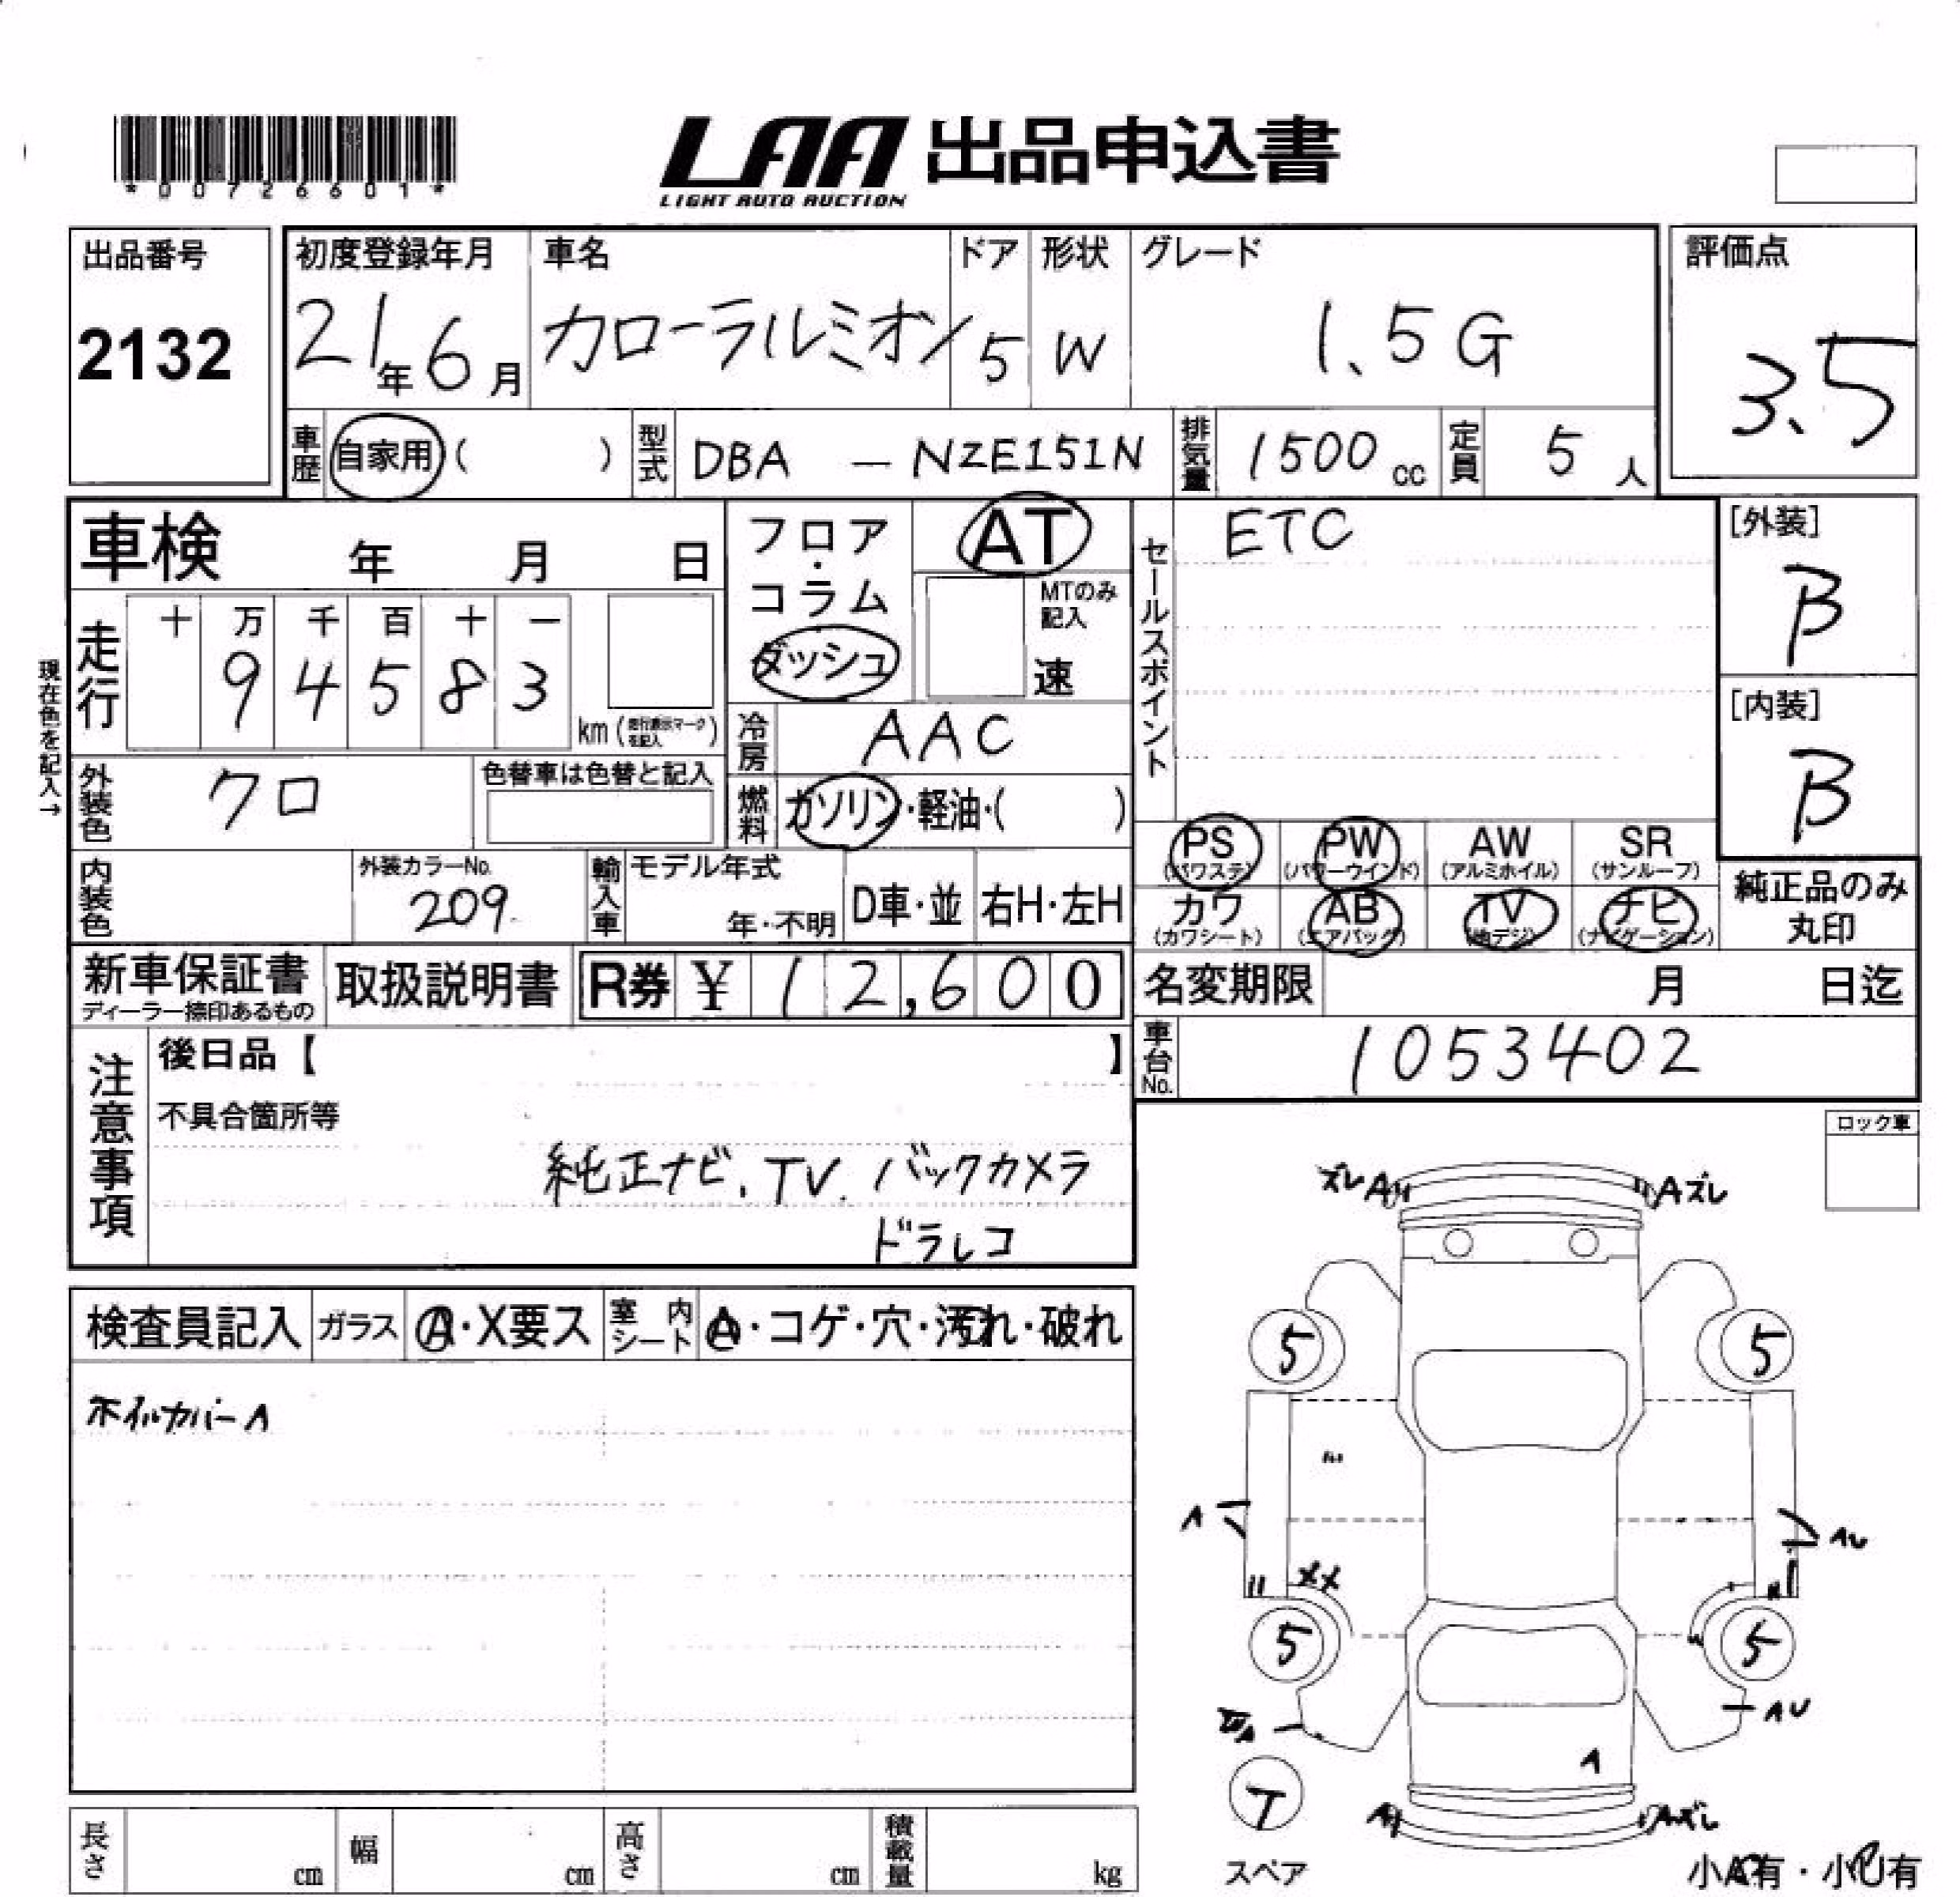 *00726601*
LAA 出品申込書
LIGHT AUTO AUCTION
出品番号
2132
初度登録年月
21年6月
車名
カローラルミオン
ドア
5
形状
W
グレード
1.5G
評価点
3.5
車歴
自家用( )
型式
DBA - NZE151N
排気量
1500cc
定員
5人
車検 年 月 日
フロア・コラム
ダッシュ
AT
MTのみ
記入
速
現在色を記入→
走行
十 万 千 百 十 一
9 4 5 8 3
km(走行表示マークを記入)
冷房
AAC
燃料
ガソリン・軽油・( )
外装色
クロ
色替車は色替と記入
内装色
外装カラーNo.
209
輸入車
モデル年式
年・不明
D車・並
右H・左H
セールスポイント
ETC
[外装]
B
[内装]
B
PS
(パワステ)
PW
(パワーウインド)
AW
(アルミホイル)
SR
(サンルーフ)
カワ
(カワシート)
AB
(エアバッグ)
TV
(地デジ)
ナビ
(ナビゲーション)
純正品のみ
丸印
新車保証書
ディーラー捺印あるもの
取扱説明書
R券 ¥12,600
名変期限 月 日迄
車台No.
1053402
注意事項
後日品【 】
不具合箇所等
純正ナビ、TV、バックカメラ
ドラレコ
ロック車
検査員記入
ガラス
A・X要ス
室内シート
A・コゲ・穴・汚れ・破れ
ホイルカバーA
ズレA
Aズレ
5
5
A
AU
XX
5
5
AU
A
T
スペア
A
Aズレ
小A有・小U有
長さ cm
幅 cm
高さ cm
積載量 kg